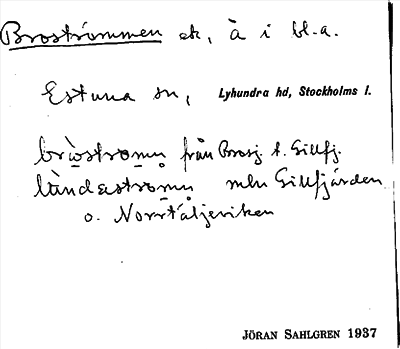 Broströmmen ek, Å i bl.a.
Estuna sn, Lyhundra hd, Stockholms l.
bròstromṇ från Brosj. t. Gillfj.
làndastromṇ mln Gillfjärden
o. Norrtäljeviken
JÖRAN SAHLGREN 1937